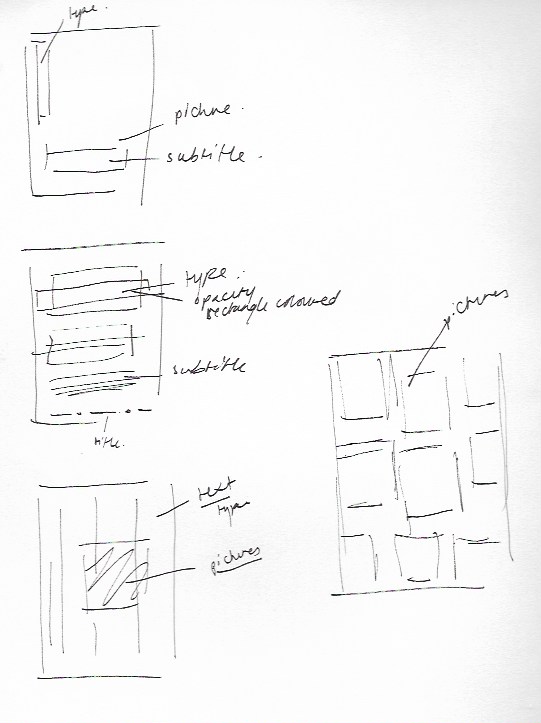 type.
picture.
subtitle.
type.
opacity
rectangle coloured
subtitle
title.
pictures
text
type
pictures